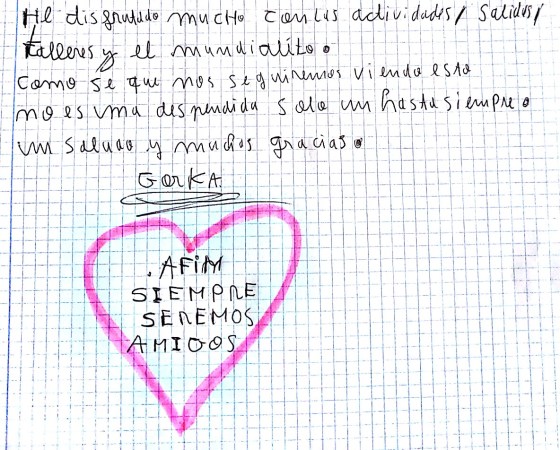 He disfrutado mucho con las actividades/ salidas/
talleres y el mundialito.
Como sé que nos seguiremos viendo esto
no es una despendida solo un hasta siempre.
un saludo y muchas gracias.
GORKA.
.AFIM
SIEMPRE
SEREMOS
AMIGOS